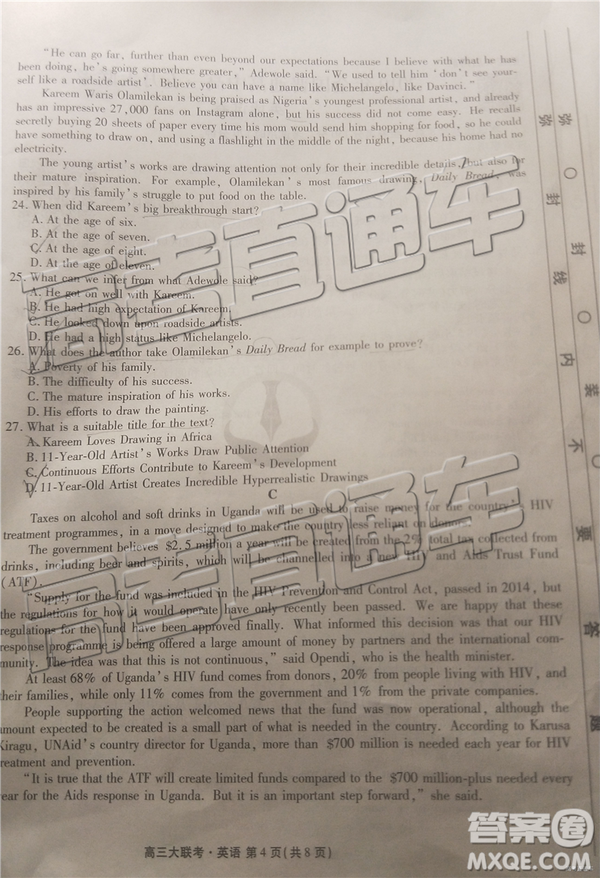 "He can go far, further than even beyond our expectations because I believe with what he has
been doing, he's going somewhere greater," Adewole said. "We used to tell him 'don't see your-
self like a roadside artist'. Believe you can have a name like Michelangelo, like Davinci."
Kareem Waris Olamilekan is being praised as Nigeria's youngest professional artist, and already
has an impressive 27,000 fans on Instagram alone, but his success did not come easy. He recalls
secretly buying 20 sheets of paper every time his mom would send him shopping for food, so he could
have something to draw on, and using a flashlight in the middle of the night, because his home had no
electricity.
The young artist's works are drawing attention not only for their incredible details, but also for
their mature inspiration. For example, Olamilekan's most famous drawing, Daily Bread, was
inspired by his family's struggle to put food on the table.
24. When did Kareem's big breakthrough start?
A. At the age of six.
B. At the age of seven.
C. At the age of eight.
D. At the age of eleven.
25. What can we infer from what Adewole said?
A. He got on well with Kareem.
B. He had high expectation of Kareem.
C. He looked down upon roadside artists.
D. He had a high status like Michelangelo.
26. What does the author take Olamilekan's Daily Bread for example to prove?
A. Poverty of his family.
B. The difficulty of his success.
C. The mature inspiration of his works.
D. His efforts to draw the painting.
27. What is a suitable title for the text?
A. Kareem Loves Drawing in Africa
B. 11-Year-Old Artist's Works Draw Public Attention
C. Continuous Efforts Contribute to Kareem's Development
D. 11-Year-Old Artist Creates Incredible Hyperrealistic Drawings
C
Taxes on alcohol and soft drinks in Uganda will be used to raise money for the country's HIV
treatment programmes, in a move designed to make the country less reliant on donors.
The government believes $2.5 million a year will be created from the 2% total tax collected from
drinks, including beer and spirits, which will then be channelled into a new HIV and Aids Trust Fund
(ATF).
"Supply for the fund was included in the HIV Prevention and Control Act, passed in 2014, but
the regulations for how it would operate have only recently been passed. We are happy that these
regulations for the fund have been approved finally. What informed this decision was that our HIV
response programme is being offered a large amount of money by partners and the international com-
munity. The idea was that this is not continuous," said Opendi, who is the health minister.
At least 68% of Uganda's HIV fund comes from donors, 20% from people living with HIV, and
their families, while only 11% comes from the government and 1% from the private companies.
People supporting the action welcomed news that the fund was now operational, although the
amount expected to be created is a small part of what is needed in the country. According to Karusa
Kiragu, UNAid's country director for Uganda, more than $700 million is needed each year for HIV
treatment and prevention.
"It is true that the ATF will create limited funds compared to the $700 million-plus needed every
year for the Aids response in Uganda. But it is an important step forward," she said.
高三大联考·英语 第4页(共8页)
弥 封 线 内 不 要 答 题
弥 封 装
高考直通车
高考直通车
答案圈
MXQE.COM